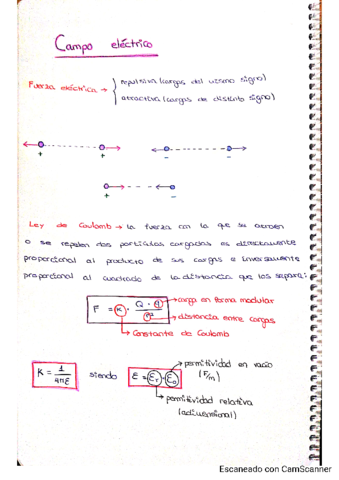 Campo eléctrico
Fuerza eléctrica → { repulsiva (cargas del mismo signo)
atractiva (cargas de distinto signo)
+ + - -
+ -
Ley de Coulomb → la fuerza con la que se atraen
o se repelen dos partículas cargadas es directamente
proporcional al producto de sus cargas e inversamente
proporcional al cuadrado de la distancia que los separa:
F = K · Q · q / R² → carga en forma modular
→ distancia entre cargas
→ Constante de Coulomb
K = 1 / 4πε siendo ε = εr · ε0 → permitividad en vacío
(F/m)
→ permitividad relativa
(adimensional)
Escaneado con CamScanner